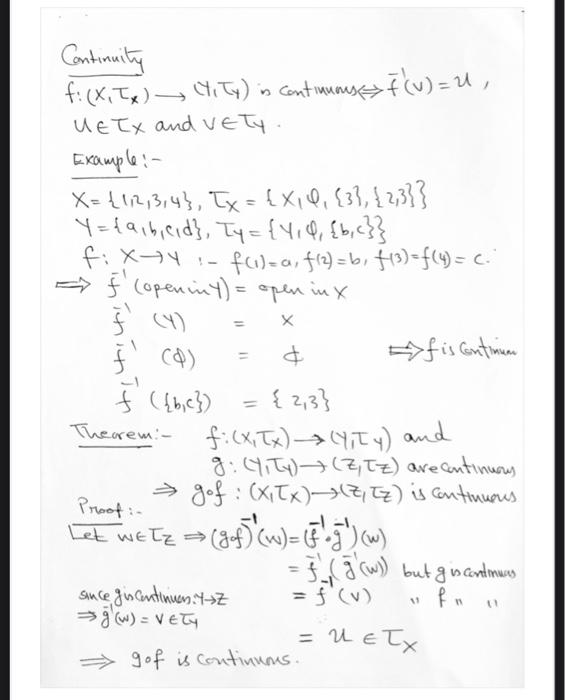 Continuity
f: (X, τ_X) → (Y, τ_Y) is continuous ⇔ f⁻¹(V) = U,
U ∈ τ_X and V ∈ τ_Y.
Example:-
X = {1,2,3,4}, τ_X = {X, φ, {3}, {2,3}}
Y = {a,b,c,d}, τ_Y = {Y, φ, {b,c}}
f: X → Y :- f(1)=a, f(2)=b, f(3)=f(4)=c.
⇒ f⁻¹(open in Y) = open in X
f⁻¹(Y) = X
f⁻¹(φ) = φ ⇒ f is continuous
f⁻¹({b,c}) = {2,3}
Theorem:- f: (X, τ_X) → (Y, τ_Y) and
g: (Y, τ_Y) → (Z, τ_Z) are continuous
⇒ gof : (X, τ_X) → (Z, τ_Z) is continuous
Proof:-
Let W ∈ τ_Z ⇒ (gof)⁻¹(W) = (f⁻¹∘g⁻¹)(W)
= f⁻¹(g⁻¹(W)) but g is continuous
since g is continuous: Y→Z = f⁻¹(V) " f " "
⇒ g⁻¹(W) = V ∈ τ_Y
= U ∈ τ_X
⇒ gof is continuous.